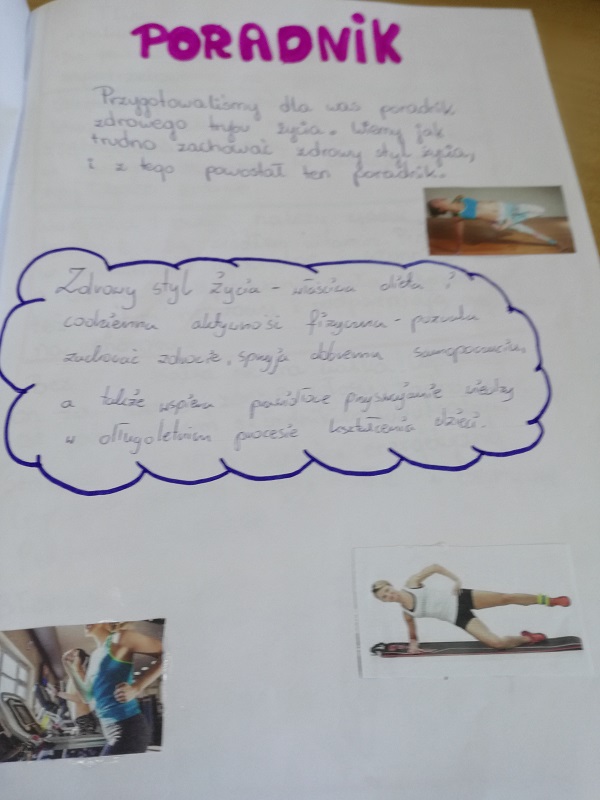 PORADNIK
Przygotowaliśmy dla was poradnik
zdrowego trybu życia. Wiemy jak
trudno zachować zdrowy styl życia,
i z tego powostał ten poradnik.
Zdrowy styl życia - właściwa dieta i
codzienna aktywność fizyczna - pozwala
zachować zdrowie, sprzyja dobremu samopoczuciu,
a także wspiera prawidłowe przyswajanie wiedzy
w długoletnim procesie kształcenia dzieci.